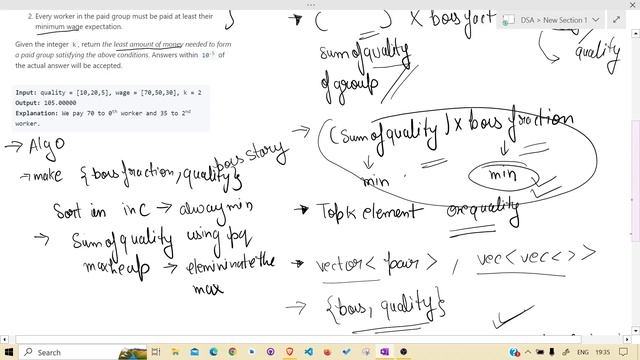 2. Every worker in the paid group must be paid at least their
minimum wage expectation.
Given the integer k, return the least amount of money needed to form
a paid group satisfying the above conditions. Answers within 10⁻⁵ of
the actual answer will be accepted.
Input: quality = [10,20,5], wage = [70,50,30], k = 2
Output: 105.00000
Explanation: We pay 70 to 0th worker and 35 to 2nd
worker.
→ Algo
→ make {boss fraction, quality}
boss story
Sort in inc → alway min
→ Sum of quality using pq
maxheap → elemininate the
max
( ) X boss fact
sum of quality
of group
DSA > New Section 1
quality
→ (sum of quality) X boss fraction
min
min
→ Top k element on quality
→ vector<pair>, vec<vec<>>
→ {boss, quality}
Search
ENG
19:35